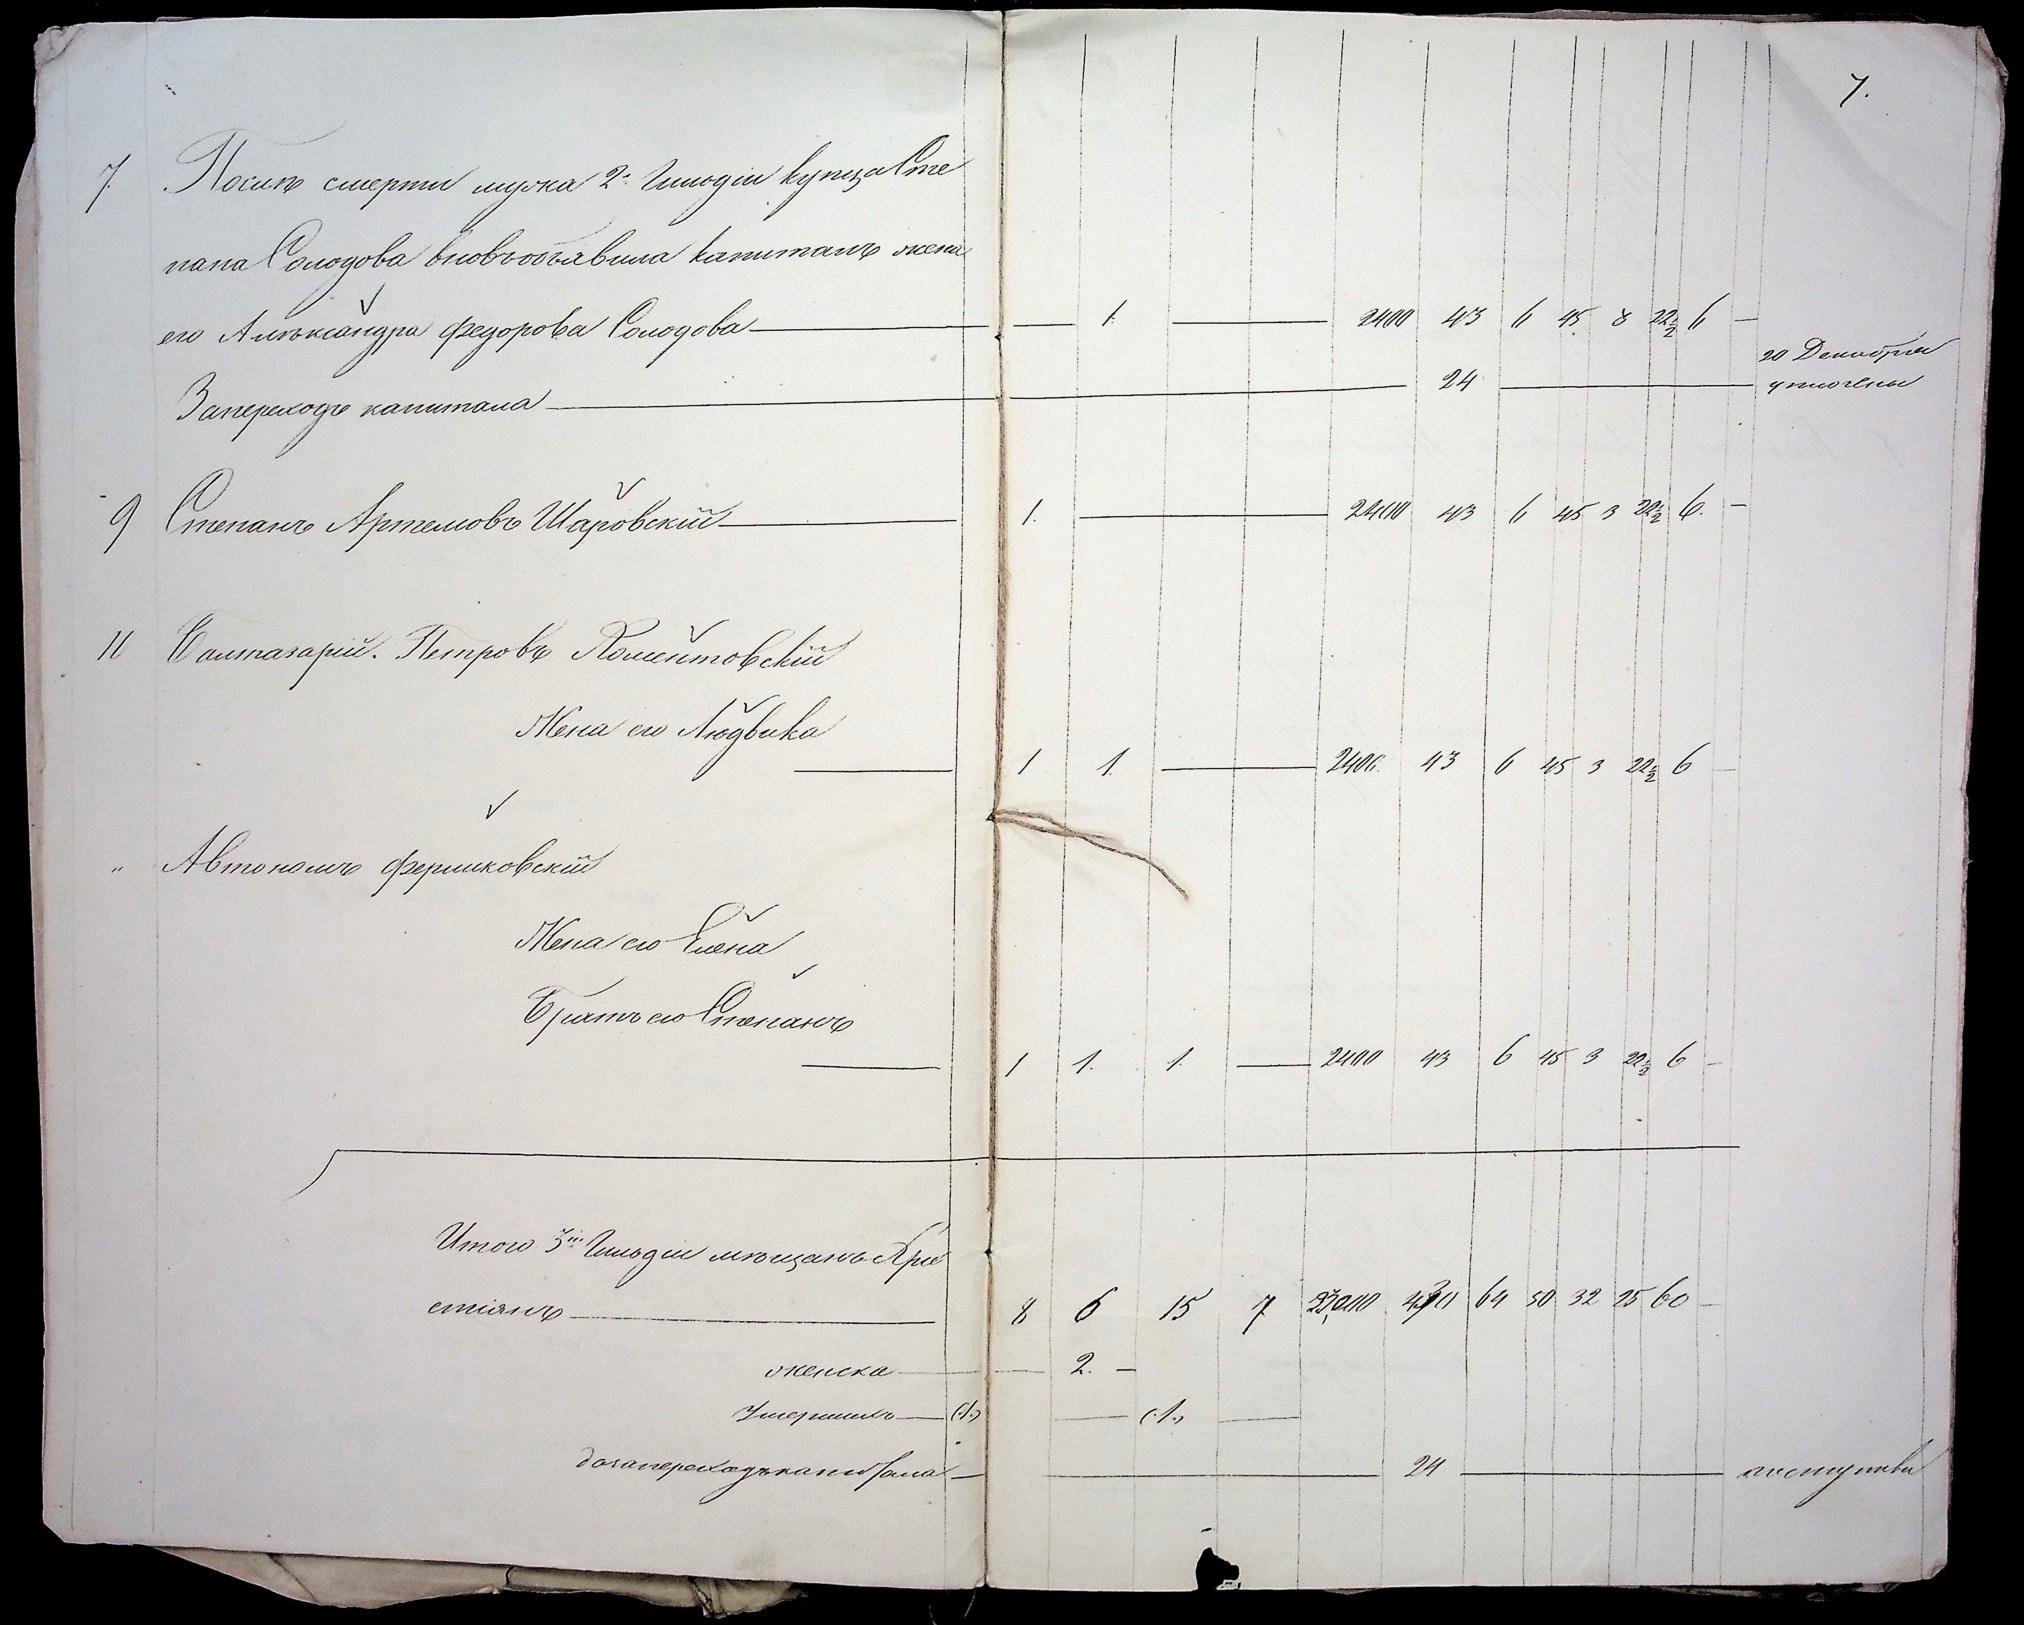 7.
7. Послѣ смерти мужа 2й Гильдіи купца Сте
пана Солодова вновь объявила капиталъ жена
его Алѣксандра Федорова Солодова — 1. — 2400 43 6 45 3 22½ 6 —
За переходъ капитала — 24 — 20 Декабря
уплочены
9 Степанъ Артемовъ Шаровскій — 1. — 2400 43 6 45 3 22½ 6. —
11 Балтазарій Петровъ Коментовскій
Жена его Людвика
— 1 1. — 2400. 43 6 45 3 22½ 6 —
" Автономъ Фермковскій
Жена его Елена
Братъ его Степанъ
— 1 1. 1. — 2400 43 6 45 3 22½ 6 —
Итого 3й Гильдіи мѣщанъ Хри
стіянъ — 8 6 15 7 430 64 50 32 25 60 —
женска — 2. —
Умершихъ — (.1.) — (.1.) —
да за переходъ капитала — 24 — поступивш